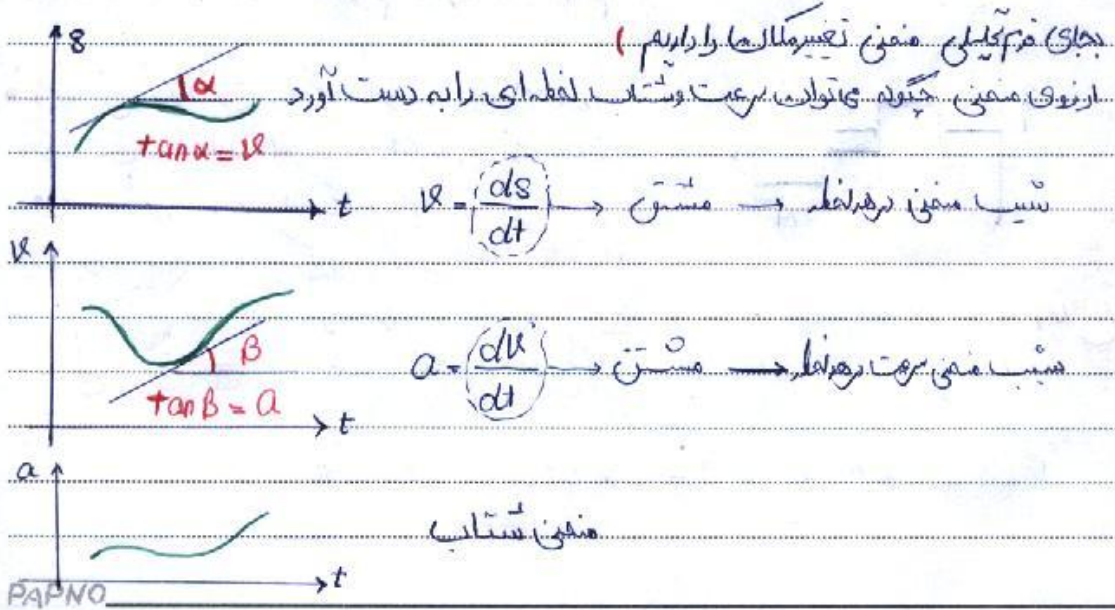 بجای فرم تحلیلی منحنی تغییر مکان ها را داریم )
از روی منحنی چگونه می توان سرعت و شتاب لحظه ای را به دست آورد
s
α
tan α = v
t
v = ds/dt → مشتق → شیب منحنی در هر لحظه
v
β
tan β = a
t
a = dv/dt → مشتق → شیب منحنی سرعت در هر لحظه
a
t
منحنی شتاب
PAPNO